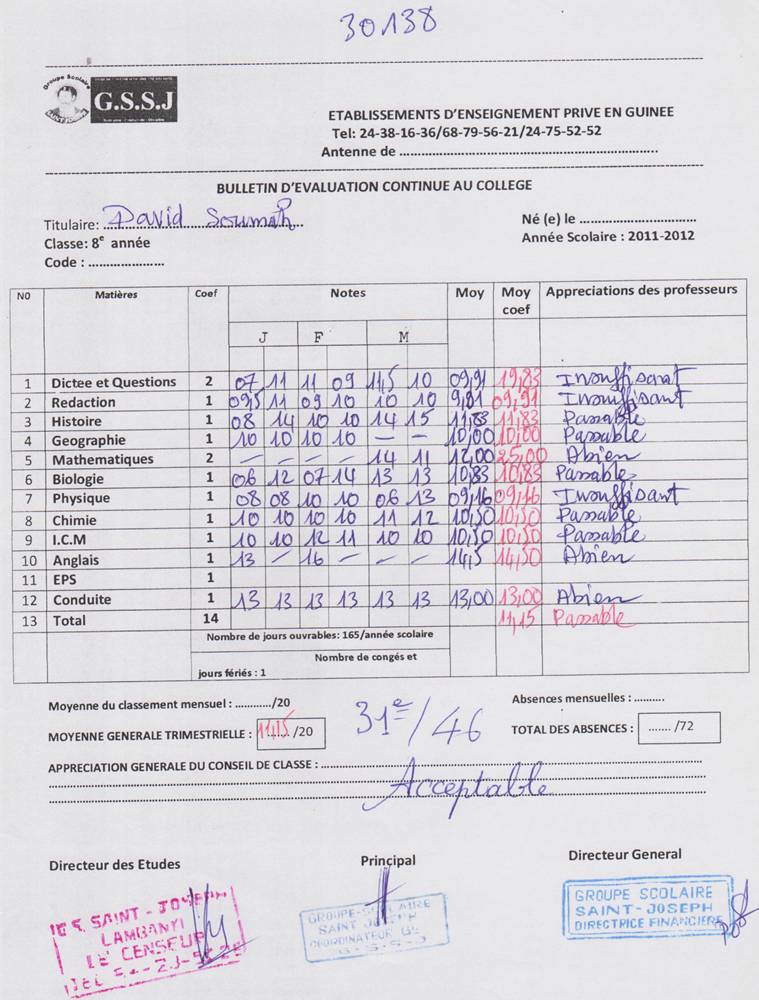 30138
Groupe Scolaire
SAINT-JOSEPH
G.S.S.J
ETABLISSEMENTS D'ENSEIGNEMENT PRIVE EN GUINEE
Tel: 24-38-16-36/68-79-56-21/24-75-52-52
Antenne de ...
BULLETIN D'EVALUATION CONTINUE AU COLLEGE
Titulaire: David Soumah
Né (e) le ...
Classe: 8e année
Année Scolaire : 2011-2012
Code : ...
N0 Matières Coef Notes Moy Moy coef Appreciations des professeurs
J F M
1 Dictee et Questions 2 07 11 11 09 11,5 10 09,91 19,83 Insuffisant
2 Redaction 1 09,5 11 09 10 10 10 9,91 09,91 Insuffisant
3 Histoire 1 08 14 10 10 14 15 11,83 11,83 Passable
4 Geographie 1 10 10 10 10 — — 10,00 10,00 Passable
5 Mathematiques 2 — — — — 14 11 12,00 25,00 Abien
6 Biologie 1 06 12 07 14 13 13 10,83 10,83 Passable
7 Physique 1 08 08 10 10 06 13 09,16 09,16 Insuffisant
8 Chimie 1 10 10 10 10 11 12 10,50 10,50 Passable
9 I.C.M 1 10 10 12 11 10 10 10,50 10,50 Passable
10 Anglais 1 13 — 16 — — — 14,5 14,50 Abien
11 EPS 1
12 Conduite 1 13 13 13 13 13 13 13,00 13,00 Abien
13 Total 14 11,15 Passable
Nombre de jours ouvrables: 165/année scolaire
Nombre de congés et
jours fériés : 1
Moyenne du classement mensuel : .../20
Absences mensuelles : ...
31e/46
MOYENNE GENERALE TRIMESTRIELLE : 11,15 /20
TOTAL DES ABSENCES : ... /72
APPRECIATION GENERALE DU CONSEIL DE CLASSE : ...
Acceptable
Directeur des Etudes
Principal
Directeur General
SAINT - JOSEPH
LAMBANYI
LE CENSEUR
GROUPE-SCOLAIRE
SAINT JOSEPH
GROUPE SCOLAIRE
SAINT-JOSEPH
DIRECTRICE FINANCIERE